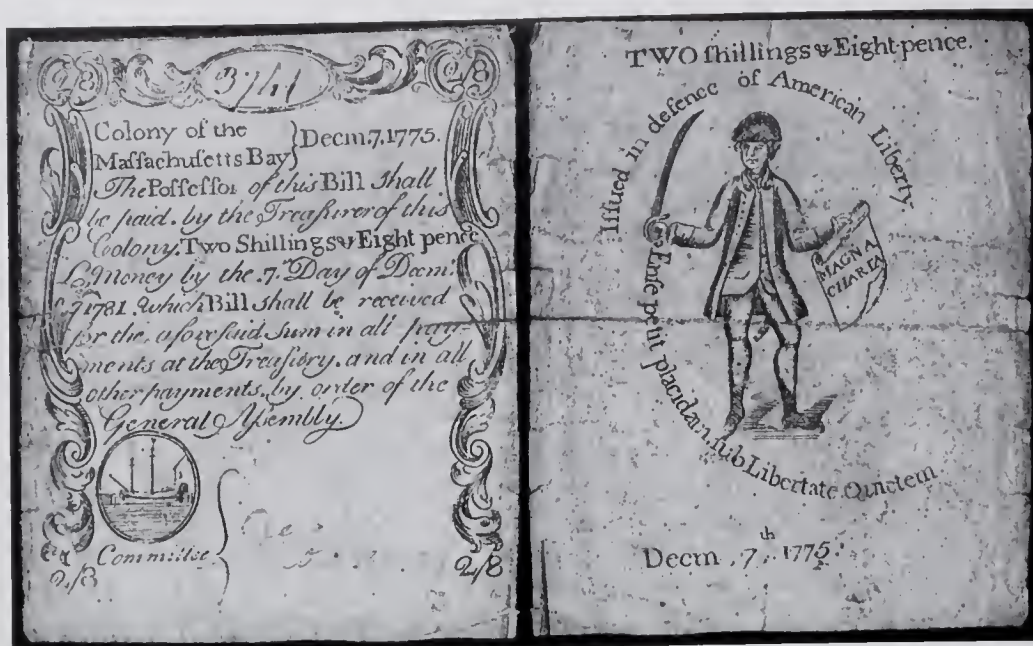 2/8 2/8
Colony of the
Maſſachuſetts Bay } Decm. 7, 1775.
The Poſſeſſor of this Bill ſhall
be paid, by the Treaſurer of this
Colony, Two Shillings & Eight pence
L. Money by the 7.th Day of Decm.
1781. which Bill ſhall be received
for the aforeſaid Sum in all pay-
ments at the Treaſury, and in all
other payments, by order of the
General Aſſembly.
Committee
2/8 2/8
TWO ſhillings & Eight pence.
Iſſued in defence of American Liberty
MAGNA
CHARTA
Enſe petit placidam, ſub Libertate Quietem
Decm. 7th, 1775.